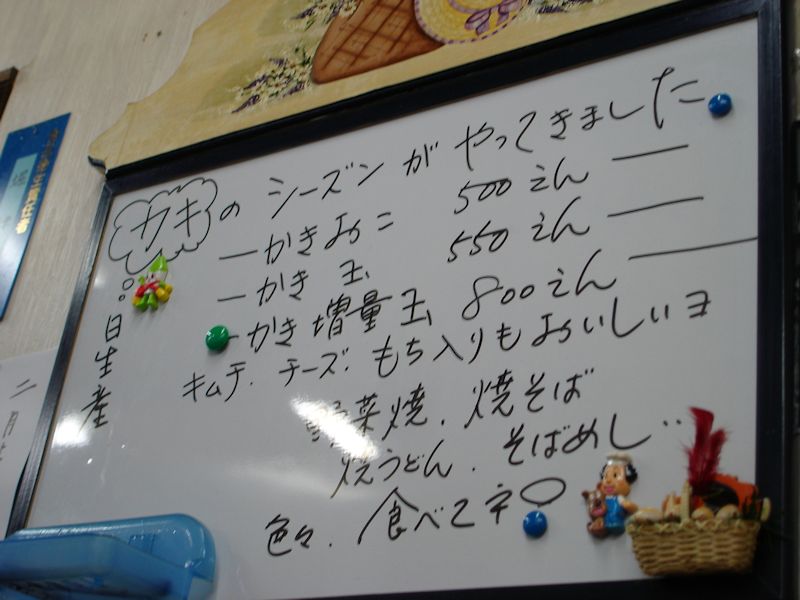 カキのシーズンがやってきました
日生産
ーかきおこ 500えんー
ーかき玉 550えんー
ーかき増量玉 800えんー
キムチ.チーズ.もち入りもおいしいヨ
野菜焼.焼そば
焼うどん.そばめし‥
色々.食べて
二月